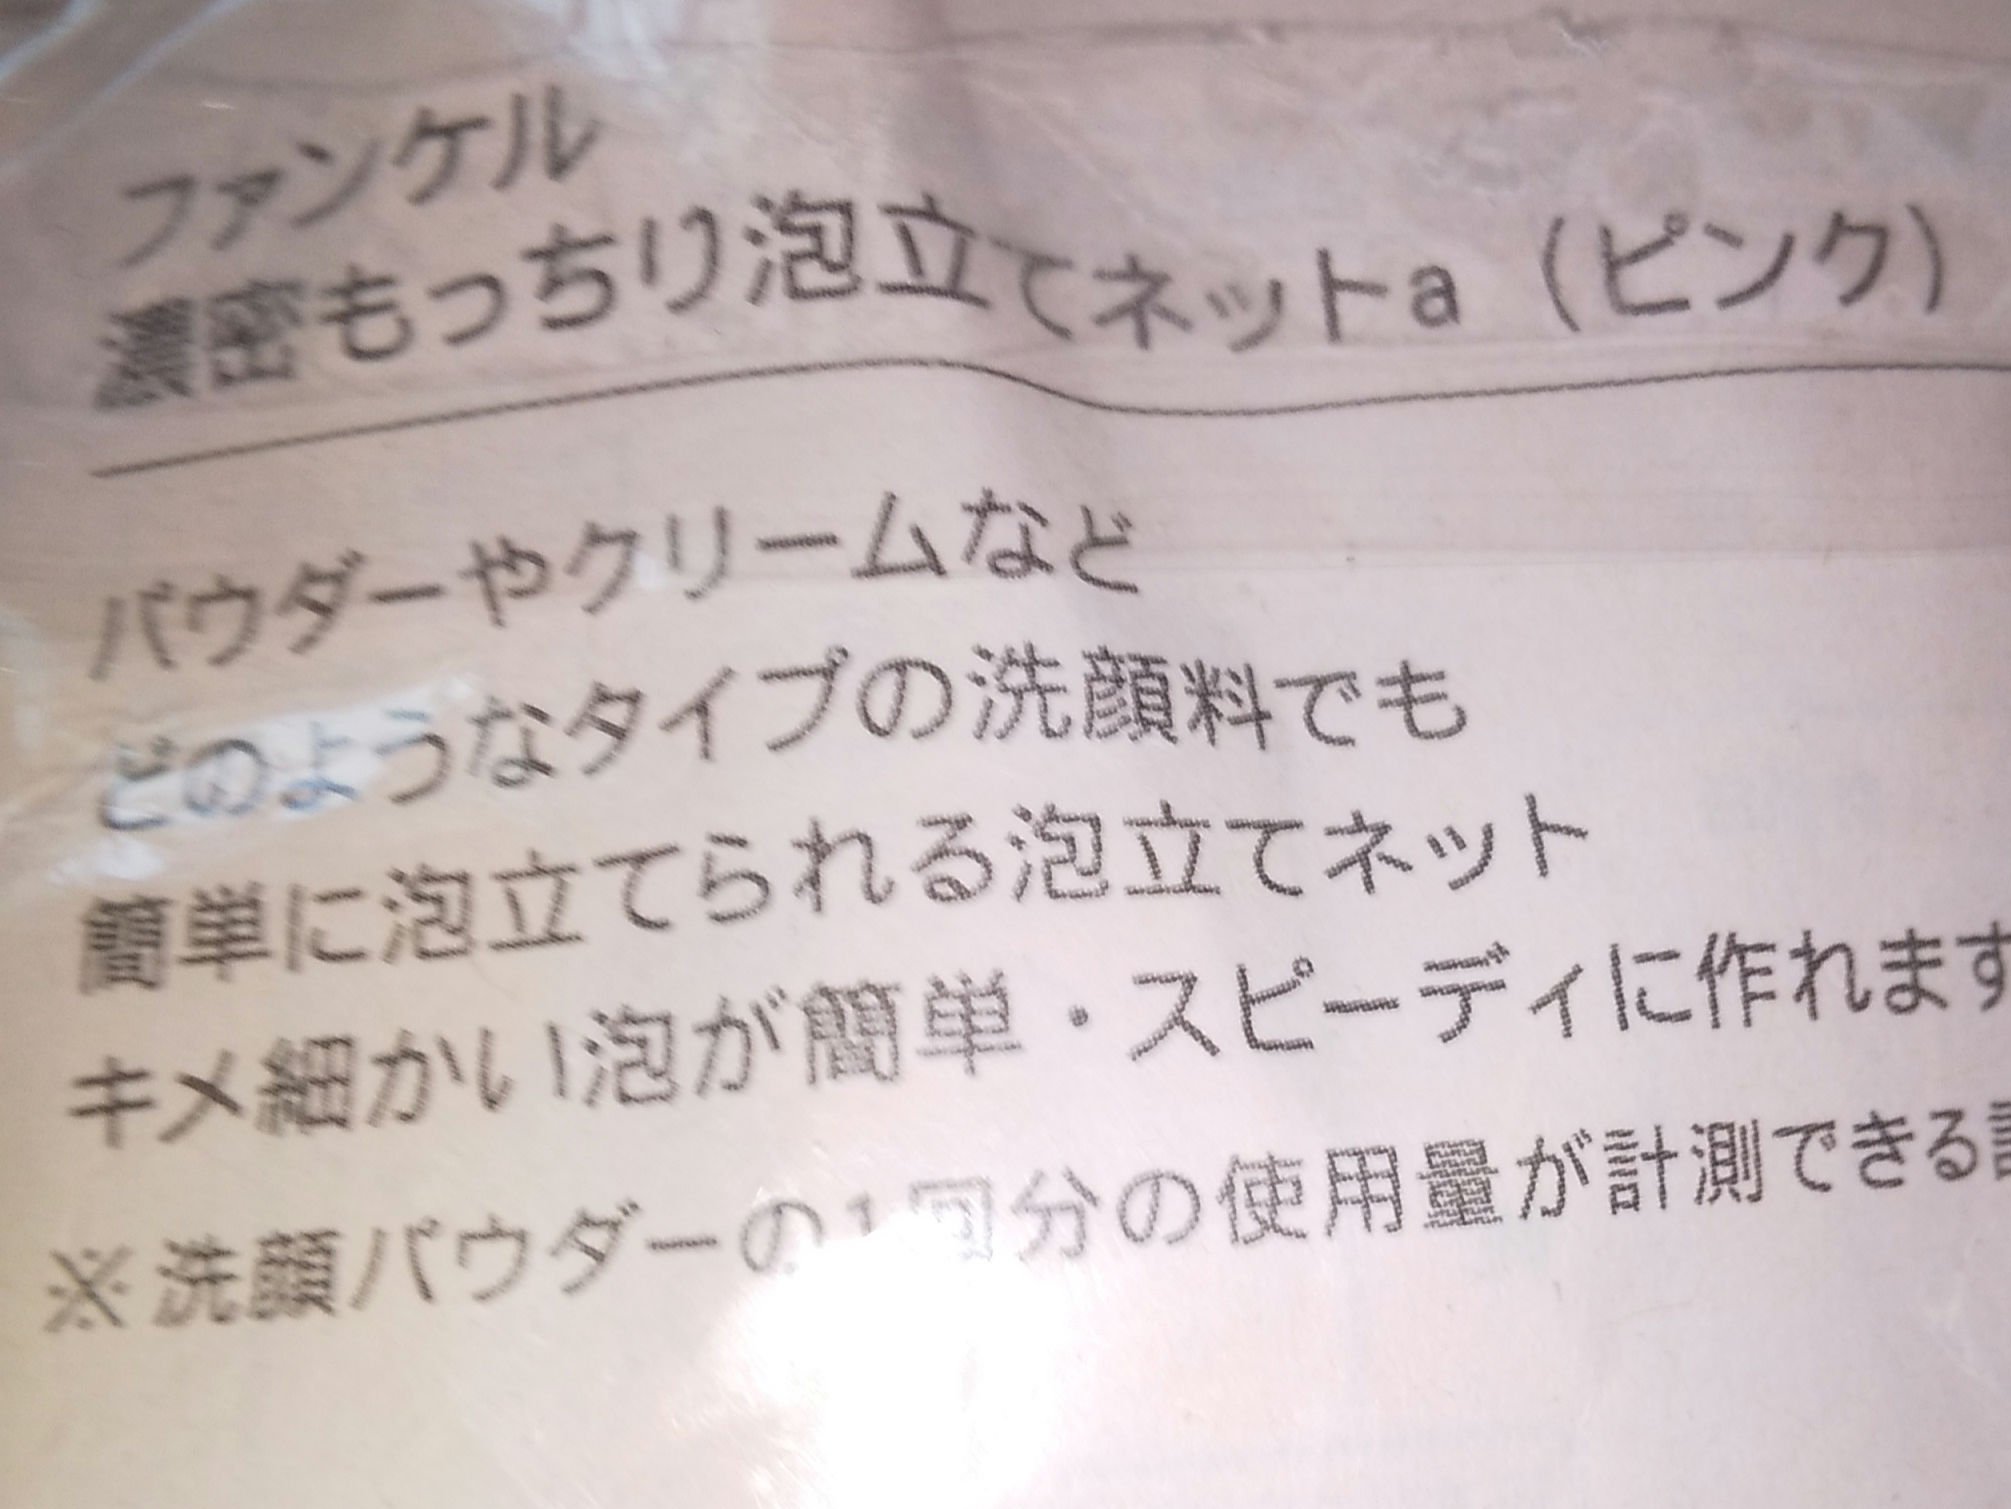 ファンケル
濃密もっちり泡立てネットa（ピンク）
パウダーやクリームなど
どのようなタイプの洗顔料でも
簡単に泡立てられる泡立てネット
キメ細かい泡が簡単・スピーディに作れます
※洗顔パウダーの1回分の使用量が計測できる